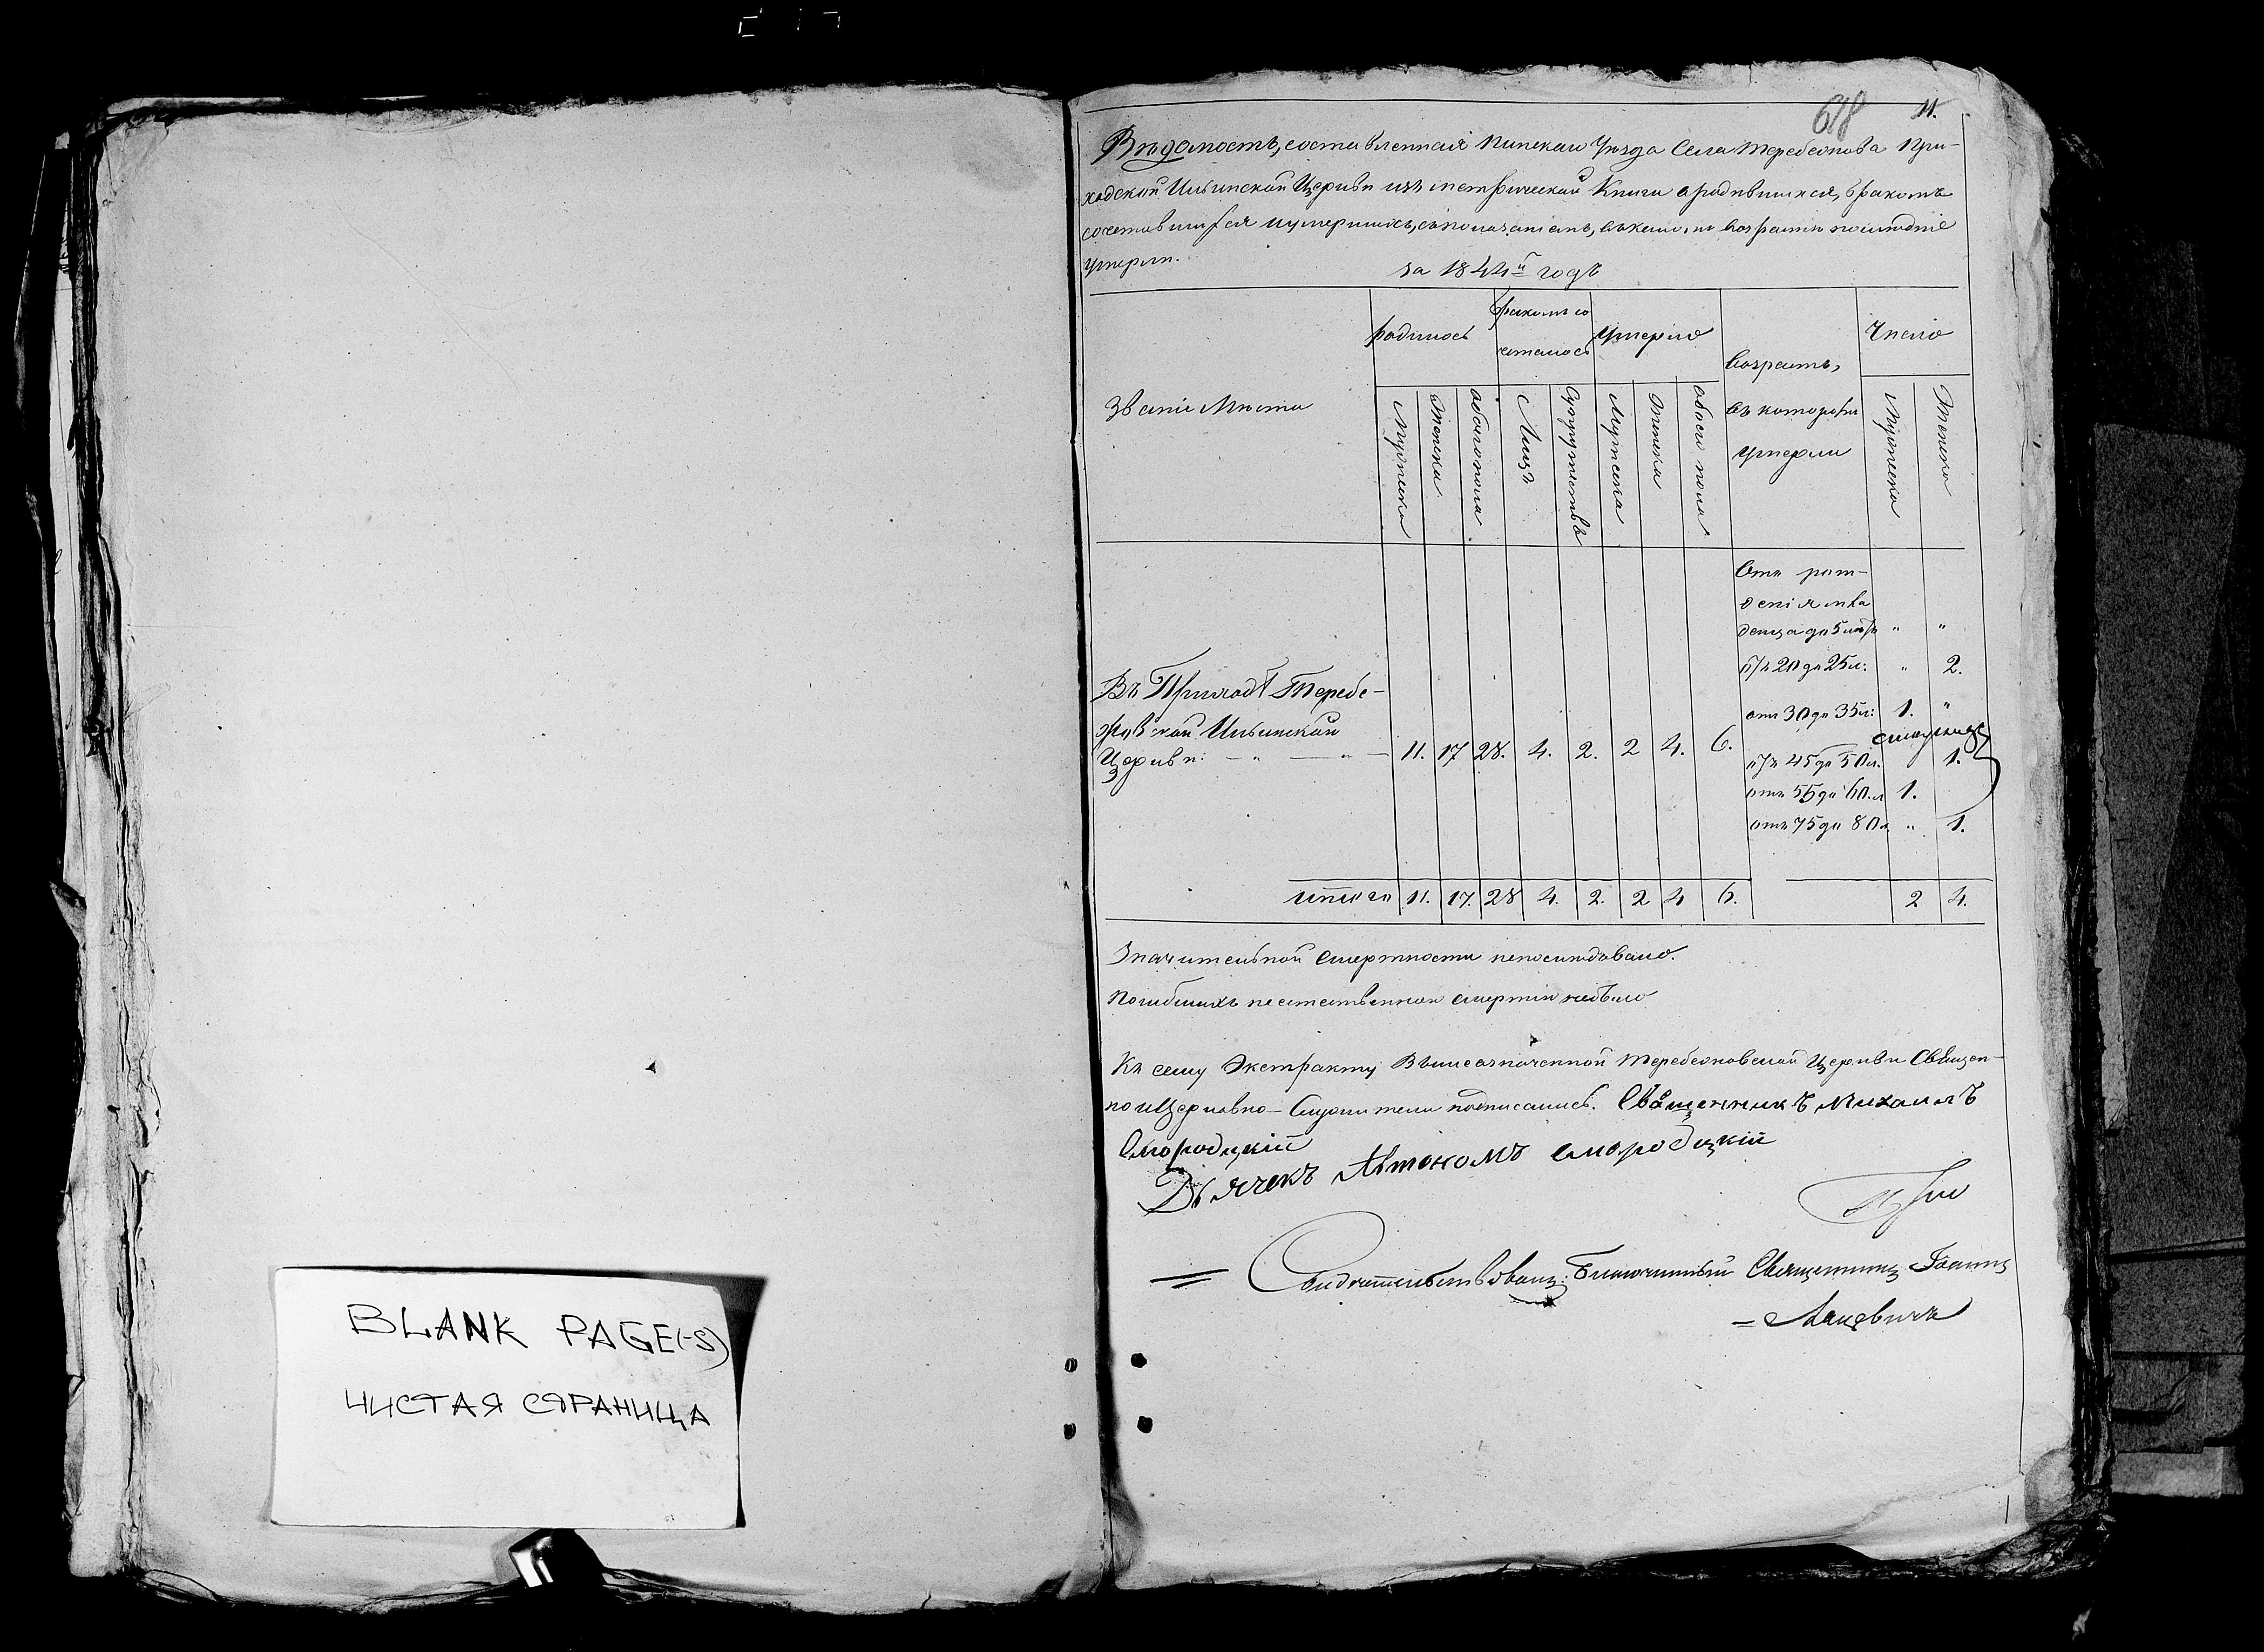 BLANK PAGE(-S)
ЧИСТАЯ СТРАНИЦА
618 11.
Вѣдомость, составленная Пинскаго Уѣзда Села Теребежова При-
ходской Ильинской Церкви изъ метрической Книги о родившихся, бракомъ
сочетавшихся и умершихъ, съ показаніемъ, въ какомъ возрастѣ послѣдніе
умерли.
за 1844й годъ
Званіе Мѣста
родилось
бракомъ со
четалось
Умерло
возрастъ,
въ которомъ
умерли
Число
Мужеска
Женска
обоего пола
Лицъ
Супружествъ
Мужеска
Женска
обоего пола
Мужеска
Женска
Отъ рож-
денія мла
денца до 5 лѣтъ " "
отъ 20 до 25 л: " 2.
отъ 30 до 35 л: 1. "
отъ 45 до 50 л. 1.
отъ 55 до 60 л 1.
отъ 75 до 80 л " 1.
Въ Приходѣ Теребе-
жовской Ильинской
Церкви: — " — " — 11. 17 28. 4. 2. 2 4. 6.
итого 11. 17. 28 4. 2. 2 4 6. 2 4.
Значительной смертности непослѣдовало.
Погибшихъ неестественною смертію небыло
Къ сему Экстракту Вышеозначенной Теребежовской Церкви Священ-
но и Церковно-Служители подписались. Священникъ Михаилъ
Смородцкій
Дьячекъ Автономъ Смородцкій
Свидѣтельствовалъ: Благочинный Священникъ Іоаннъ